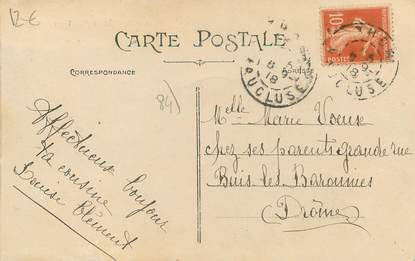 12 €
CARTE POSTALE
CORRESPONDANCE
ADRESSE
10
VAUCLUSE
VAUCLUSE
84)
Affectueux bonjour
ta cousine
Louise Clément
Melle Marie
chez ses parents grande rue
Buis les Baronnies
(Drôme)